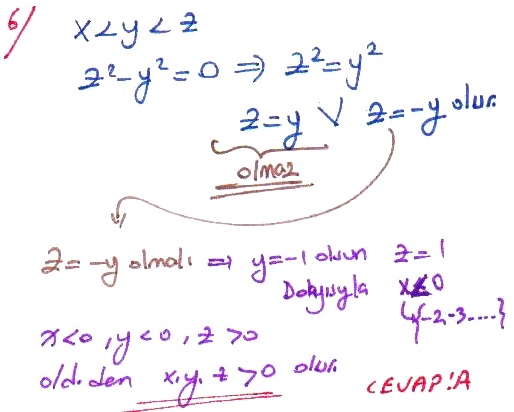 6/
x<y<z
z²-y²=0 ⇒ z²=y²
z=y ∨ z=-y olur.
olmaz
z=-y olmalı ⇒ y=-1 olsun z=1
Dolayısıyla x<0
↳{-2,-3....}
x<0, y<0, z>0
old.den x.y.z>0 olur.
CEVAP:A